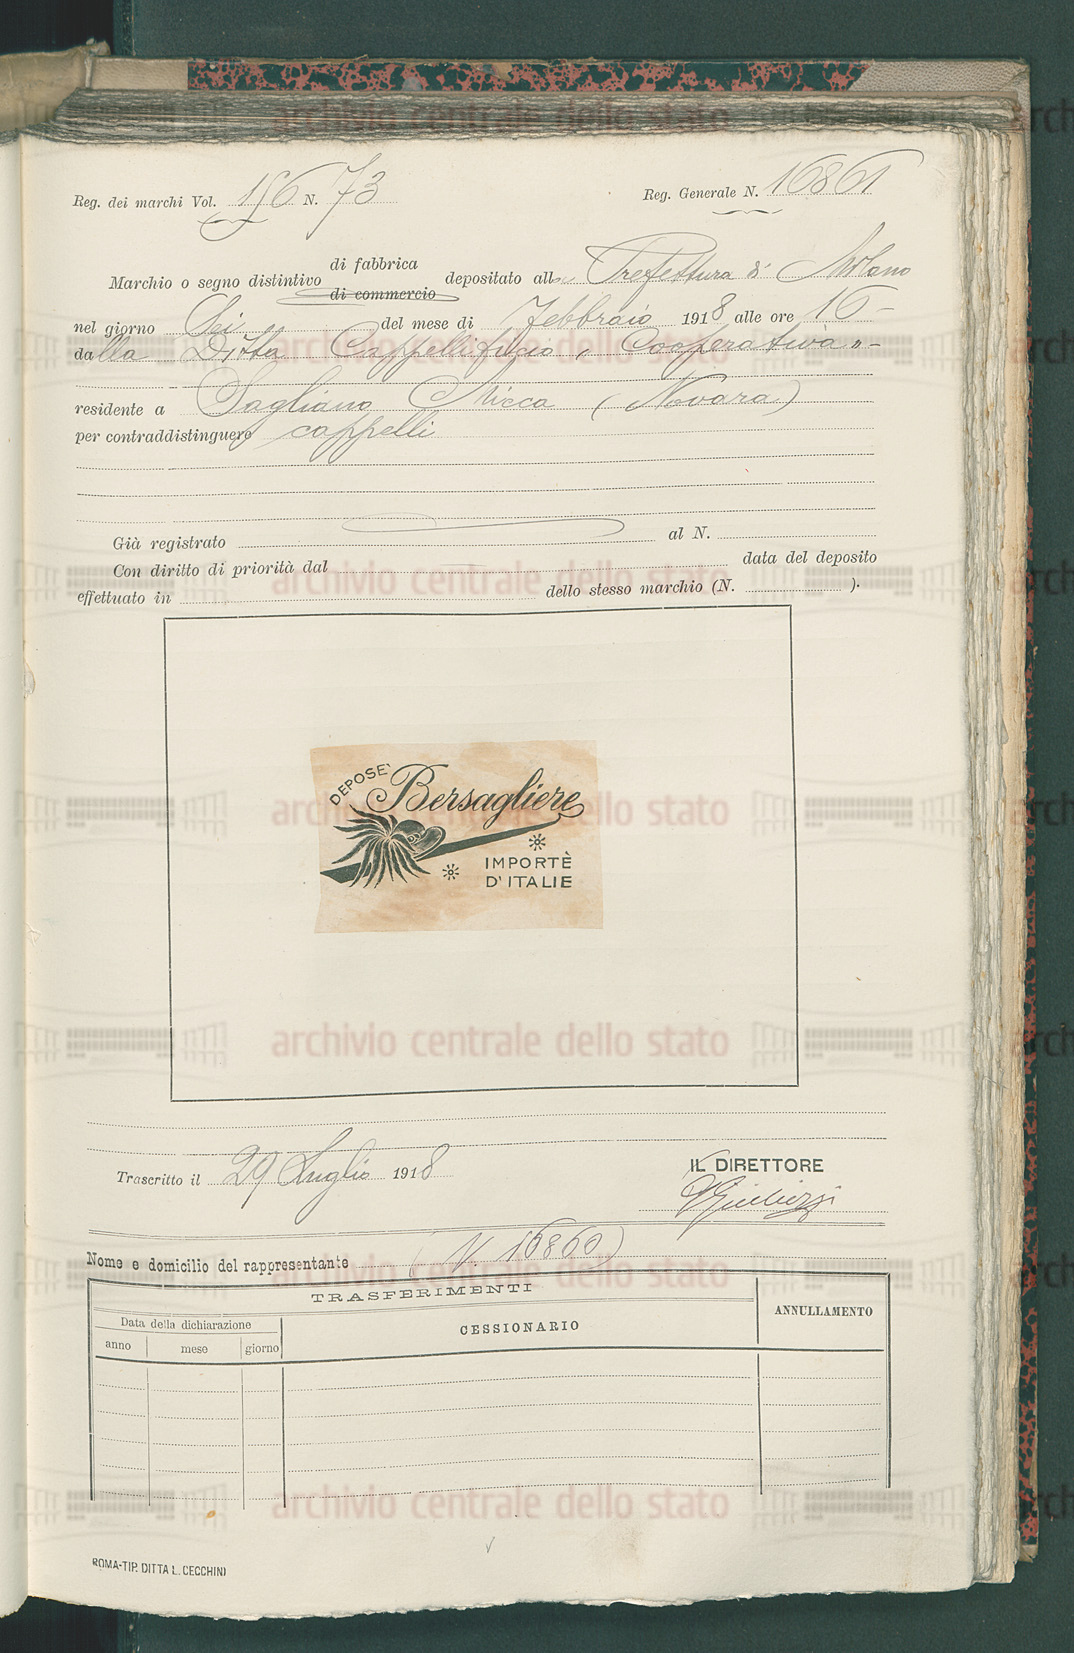 Reg. dei marchi Vol. 156 N. 73
Reg. Generale N. 16861
Marchio o segno distintivo di fabbrica di commercio depositato alla Prefettura di Milano
nel giorno Sei del mese di Febbraio 1918 alle ore 16 -
dalla Ditta Cappellificio "Cooperativa" -
residente a Sagliano Micca (Novara)
per contraddistinguere cappelli
Già registrato al N.
Con diritto di priorità dal data del deposito
effettuato in dello stesso marchio (N. ).
DEPOSE'
Bersagliere
IMPORTÈ
D'ITALIE
Trascritto il 29 Luglio 1918
IL DIRETTORE
Nome e domicilio del rappresentante (V. 16860)
TRASFERIMENTI
ANNULLAMENTO
Data della dichiarazione
CESSIONARIO
anno mese giorno
ROMA-TIP. DITTA L. CECCHINI
archivio centrale dello stato
archivio centrale dello stato
archivio centrale dello stato
archivio centrale dello stato
archivio centrale dello stato
archivio centrale dello stato
archivio centrale dello stato